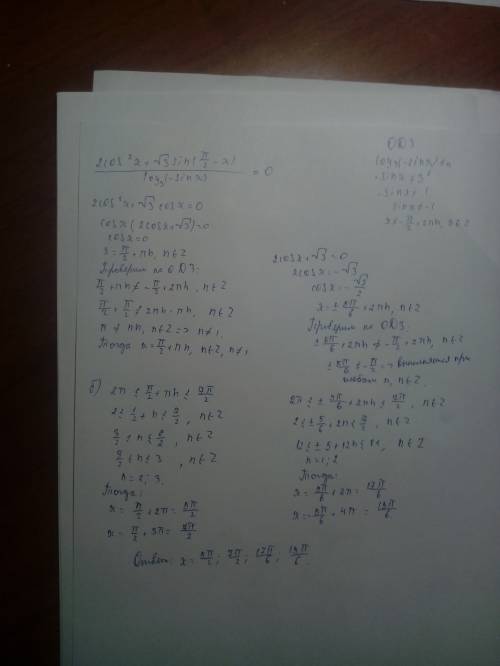 ОДЗ
2cos²x + √3 sin(π/2 - x) / log₃(-sinx) = 0
log₃(-sinx) ≠ 0
-sinx ≠ 3⁰
-sinx ≠ 1
sinx ≠ -1
x ≠ -π/2 + 2πn, n∈Z
2cos²x + √3 cosx = 0
cosx(2cosx + √3) = 0
cosx = 0
x = π/2 + πn, n∈Z
Проверим по ОДЗ:
π/2 + πn ≠ -π/2 + 2πn, n∈Z
π/2 + π/2 ≠ 2πn - πn, n∈Z
π ≠ πn, n∈Z => n ≠ 1
Тогда x = π/2 + πn, n∈Z, n ≠ 1
2cosx + √3 = 0
2cosx = -√3
cosx = -√3/2
x = ± 5π/6 + 2πn, n∈Z
Проверим по ОДЗ:
± 5π/6 + 2πn ≠ -π/2 + 2πn, n∈Z
± 5π/6 ≠ -π/2 => выполняется при
любом n, n∈Z
б) 2π ≤ π/2 + πn ≤ 7π/2
2 ≤ 1/2 + n ≤ 7/2, n∈Z
3/2 ≤ n ≤ 6/2, n∈Z
3/2 ≤ n ≤ 3, n∈Z
n = 2; 3.
Тогда:
x = π/2 + 2π = 5π/2
x = π/2 + 3π = 7π/2
2π ≤ ± 5π/6 + 2πn ≤ 7π/2, n∈Z
2 ≤ ± 5/6 + 2n ≤ 7/2, n∈Z
12 ≤ ± 5 + 12n ≤ 21, n∈Z
n = 1; 2
Тогда:
x = 5π/6 + 2π = 17π/6
x = -5π/6 + 4π = 19π/6
Ответ: x = 5π/2; 7π/2; 17π/6; 19π/6.